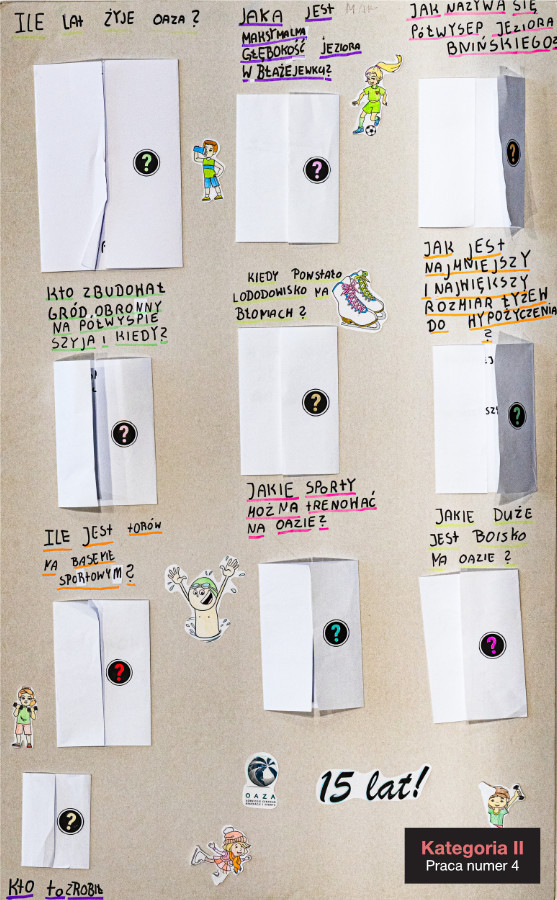 ILE LAT ŻYJE OAZA?
JAKA JEST
MAKSYMALNA
GŁĘBOKOŚĆ JEZIORA
W BŁAŻEJEWKU?
JAK NAZYWA SIĘ
PÓŁWYSEP JEZIORA
BNIŃSKIEGO?
?
?
?
KTO ZBUDOWAŁ
GRÓD OBRONNY
NA PÓŁWYSPIE
SZYJA I KIEDY?
KIEDY POWSTAŁO
LODODOWISKO NA
BŁONIACH?
JAK JEST
NAJMNIEJSZY
I NAJWIĘKSZY
ROZMIAR ŁYŻEW
DO WYPOŻYCZENIA
?
?
?
?
ILE JEST TORÓW
NA BASENIE
SPORTOWYM?
JAKIE SPORTY
MOŻNA TRENOWAĆ
NA OAZIE?
JAKIE DUŻE
JEST BOISKO
NA OAZIE?
?
?
?
?
OAZA
15 lat!
KTO to ZROBIŁ
Kategoria II
Praca numer 4